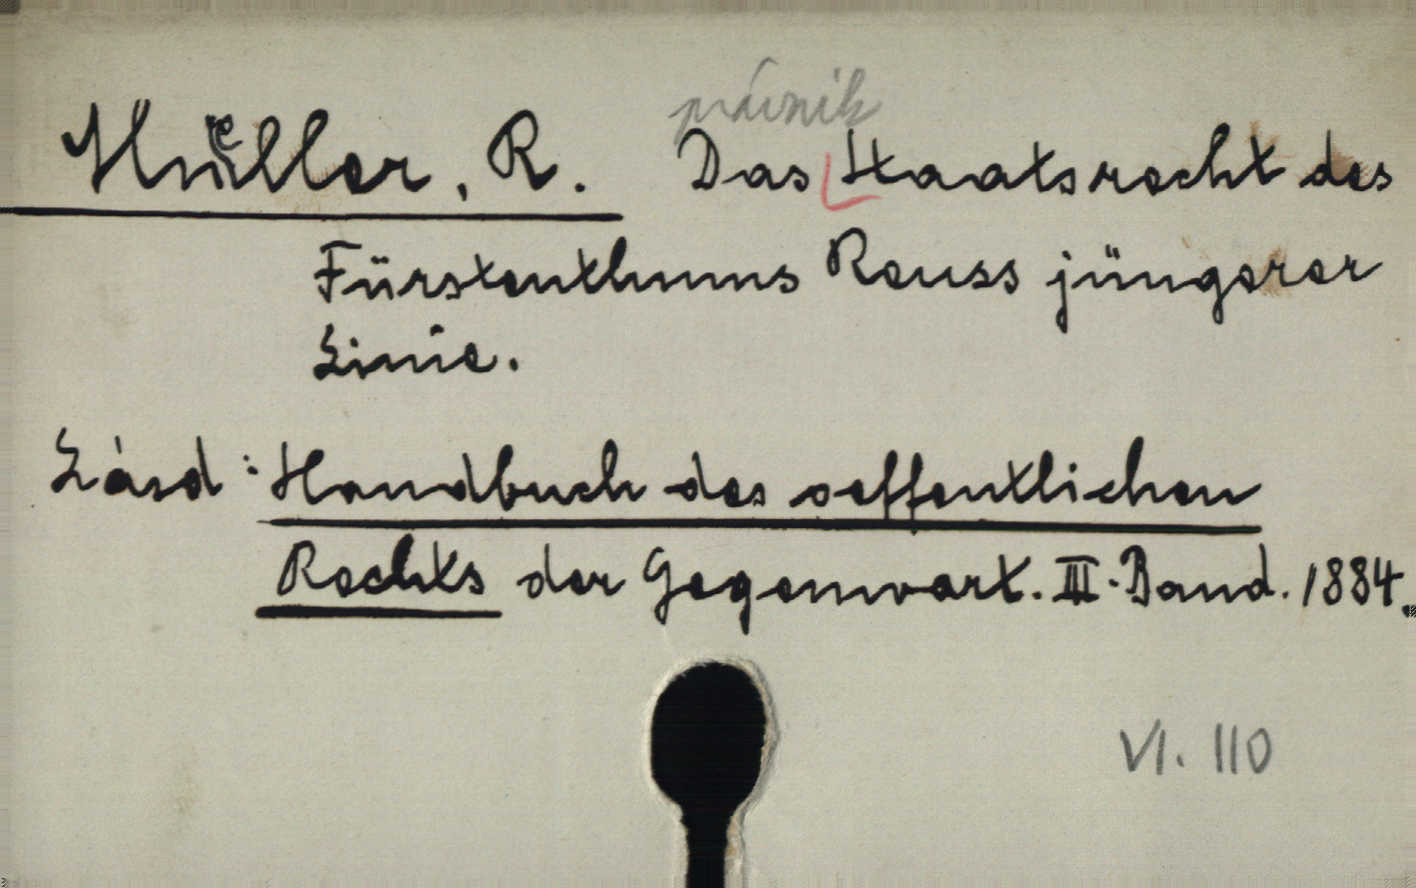 právnik
Müller, R. Das Staatsrecht des
Fürstenthums Reuss jüngerer
Linie.
Lásd: Handbuch des oeffentlichen
Rechts der Gegenwart. III. Band. 1884.
VI. 110